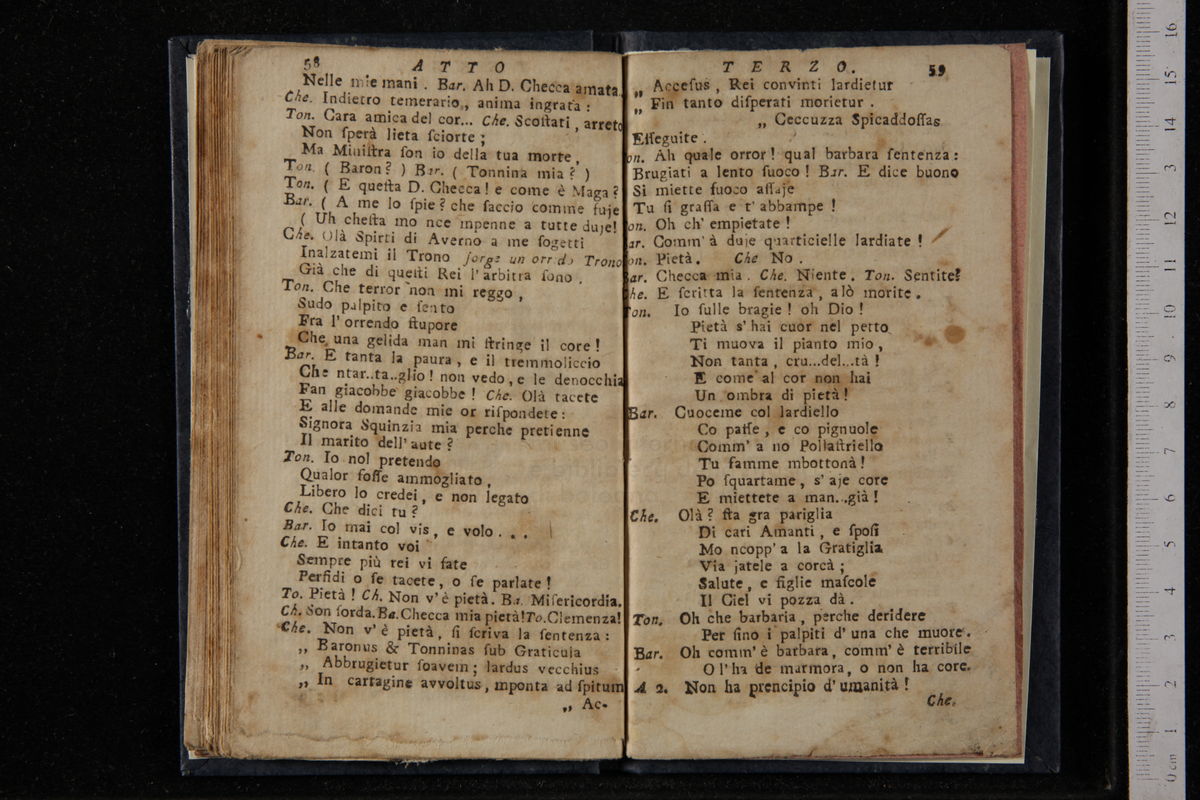 58 ATTO
Nelle mie mani . Bar. Ah D. Checca amata.
Che. Indietro temerario, anima ingrata :
Ton. Cara amica del cor... Che. Scoſtati, arreto
Non ſperà lieta ſciorte ;
Ma Miniſtra ſon io della tua morte,
Ton. ( Baron? ) Bar. ( Tonnina mia ? )
Ton. ( E queſta D. Checca ! e come è Maga ?
Bar. ( A me lo ſpie ? che faccio comme fuje
( Uh cheſta mo nce mpenne a tutte duje!
Che. Olà Spirti di Averno a me ſogetti
Inalzatemi il Trono ſorge un orrido Trono
Già che di queſti Rei l'arbitra ſono .
Ton. Che terror non mi reggo ,
Sudo palpito e ſento
Fra l'orrendo ſtupore
Che una gelida man mi ſtringe il core !
Bar. E tanta la paura , e il tremmoliccio
Che ntar..ta..glio ! non vedo , e le denocchia
Fan giacobbe giacobbe ! Che. Olà tacete
E alle domande mie or riſpondete :
Signora Squinzia mia perche pretienne
Il marito dell'aute ?
Ton. Io nol pretendo
Qualor foſſe ammogliato ,
Libero lo credei , e non legato
Che. Che dici tu ?
Bar. Io mai col vis, e volo . . .
Che. E intanto voi
Sempre più rei vi fate
Perfidi o ſe tacete , o ſe parlate !
To. Pietà ! Ch. Non v'è pietà. Ba. Miſericordia.
Ch. Son ſorda. Ba. Checca mia pietà! To. Clemenza!
Che. Non v'è pietà , ſi ſcriva la ſentenza :
„ Baronus & Tonninas ſub Graticula
„ Abbrugietur ſoavem ; lardus vecchius
„ In cartagine avvoltus, mponta ad ſpitum
„ Ac-
TERZO. 59
„ Acceſus , Rei convinti lardietur
„ Fin tanto diſperati morietur .
„ Ceccuzza Spicaddoſſas
Eſſeguite .
on. Ah quale orror ! qual barbara ſentenza :
Brugiati a lento fuoco ! Bar. E dice buono
Si miette fuoco aſſaje
Tu ſi graſſa e t'abbampe !
on. Oh ch'empietate !
ar. Comm'à duje quarticielle lardiate !
on. Pietà. Che No .
Bar. Checca mia . Che. Niente . Ton. Sentite?
Che. E ſcritta la ſentenza , alò morite .
Ton. Io ſulle bragie ! oh Dio !
Pietà s'hai cuor nel petto
Ti muova il pianto mio ,
Non tanta , cru...del...tà !
E come al cor non hai
Un ombra di pietà !
Bar. Cuoceme col lardiello
Co paſſe , e co pignuole
Comm'a no Pollaſtriello
Tu famme mbottonà !
Po ſquartame , s'aje core
E miettete a man...già !
Che. Olà ? ſta gra pariglia
Di cari Amanti , e ſpoſi
Mo ncopp'a la Gratiglia
Via jatele a corcà ;
Salute , e figlie maſcole
Il Ciel vi pozza dà .
Ton. Oh che barbaria , perche deridere
Per ſino i palpiti d'una che muore .
Bar. Oh comm'è barbara, comm'è terribile
O l'ha de marmora, o non ha core.
A 2. Non ha prencipio d'umanità !
Che.